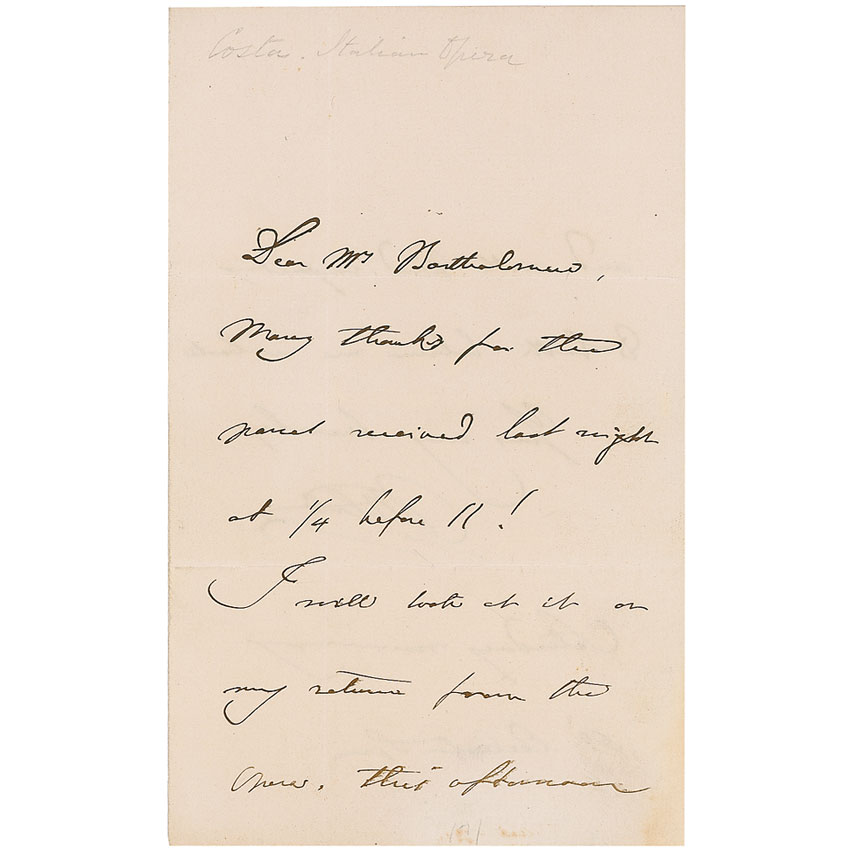 Costa. Italian Opera
Dear Mrs Bartholomew,
Many thanks for the
parcel received last night
at 1/4 before 11!
I will look at it on
my return from the
opera. this afternoon